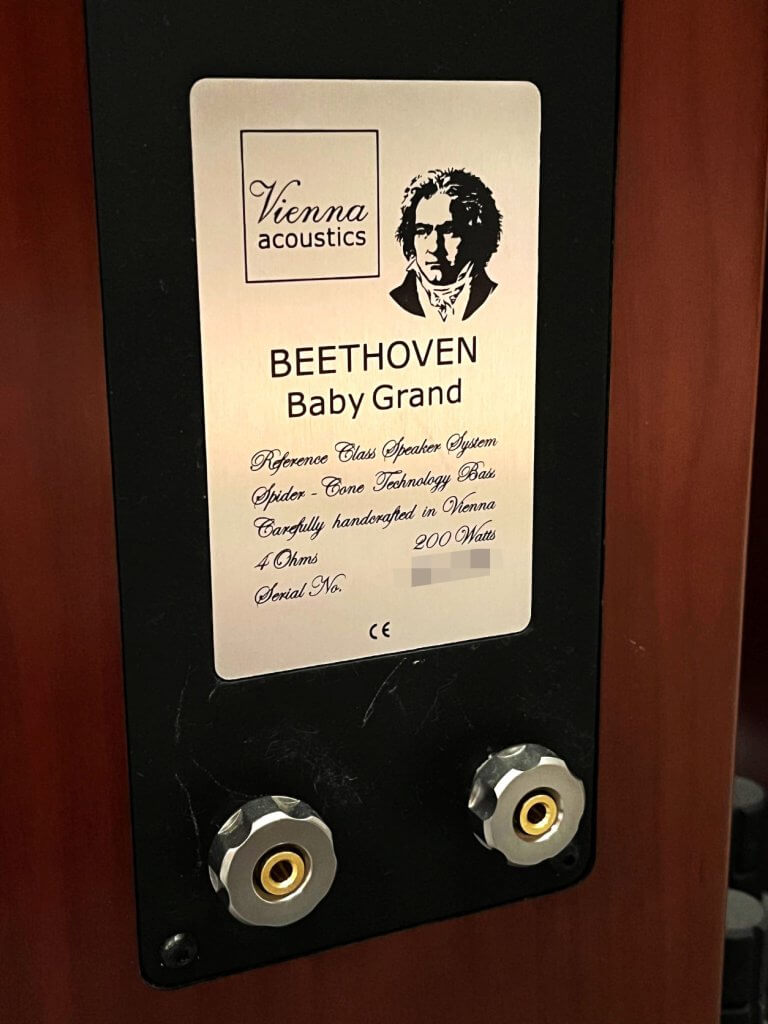 Vienna
acoustics
BEETHOVEN
Baby Grand
Reference Class Speaker System
Spider - Cone Technology Bass
Carefully handcrafted in Vienna
4 Ohms 200 Watts
Serial No.
CE